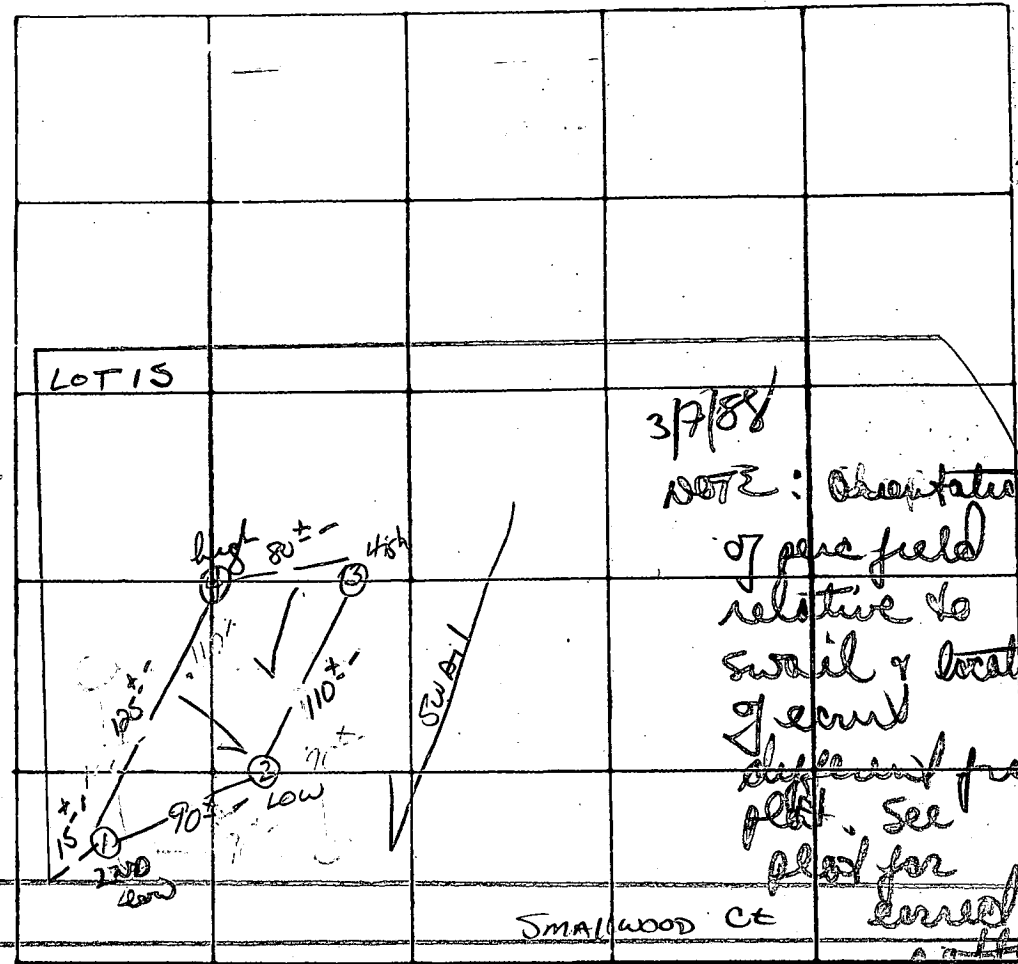 LOT 15
3/7/88
NOTE: Orientatio
of perc field
relative to
swail & locat
of
different fro
plat. See
plat for
high 80± High
4 3
110±
125±
110±
SWAil
2
LOW
90±
15±
1
2ND
low
SMALLWOOD Ct